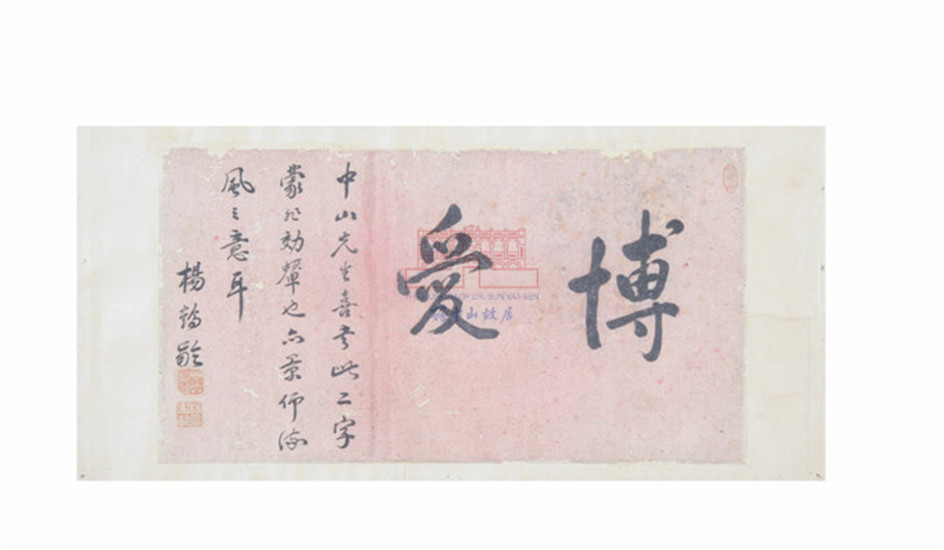 博愛
中山先生喜書此二字
蒙非効顰也亦景仰流
風之意耳
楊鶴齡
THE MUSEUM OF DR. SUN YAT-SEN
孫中山故居